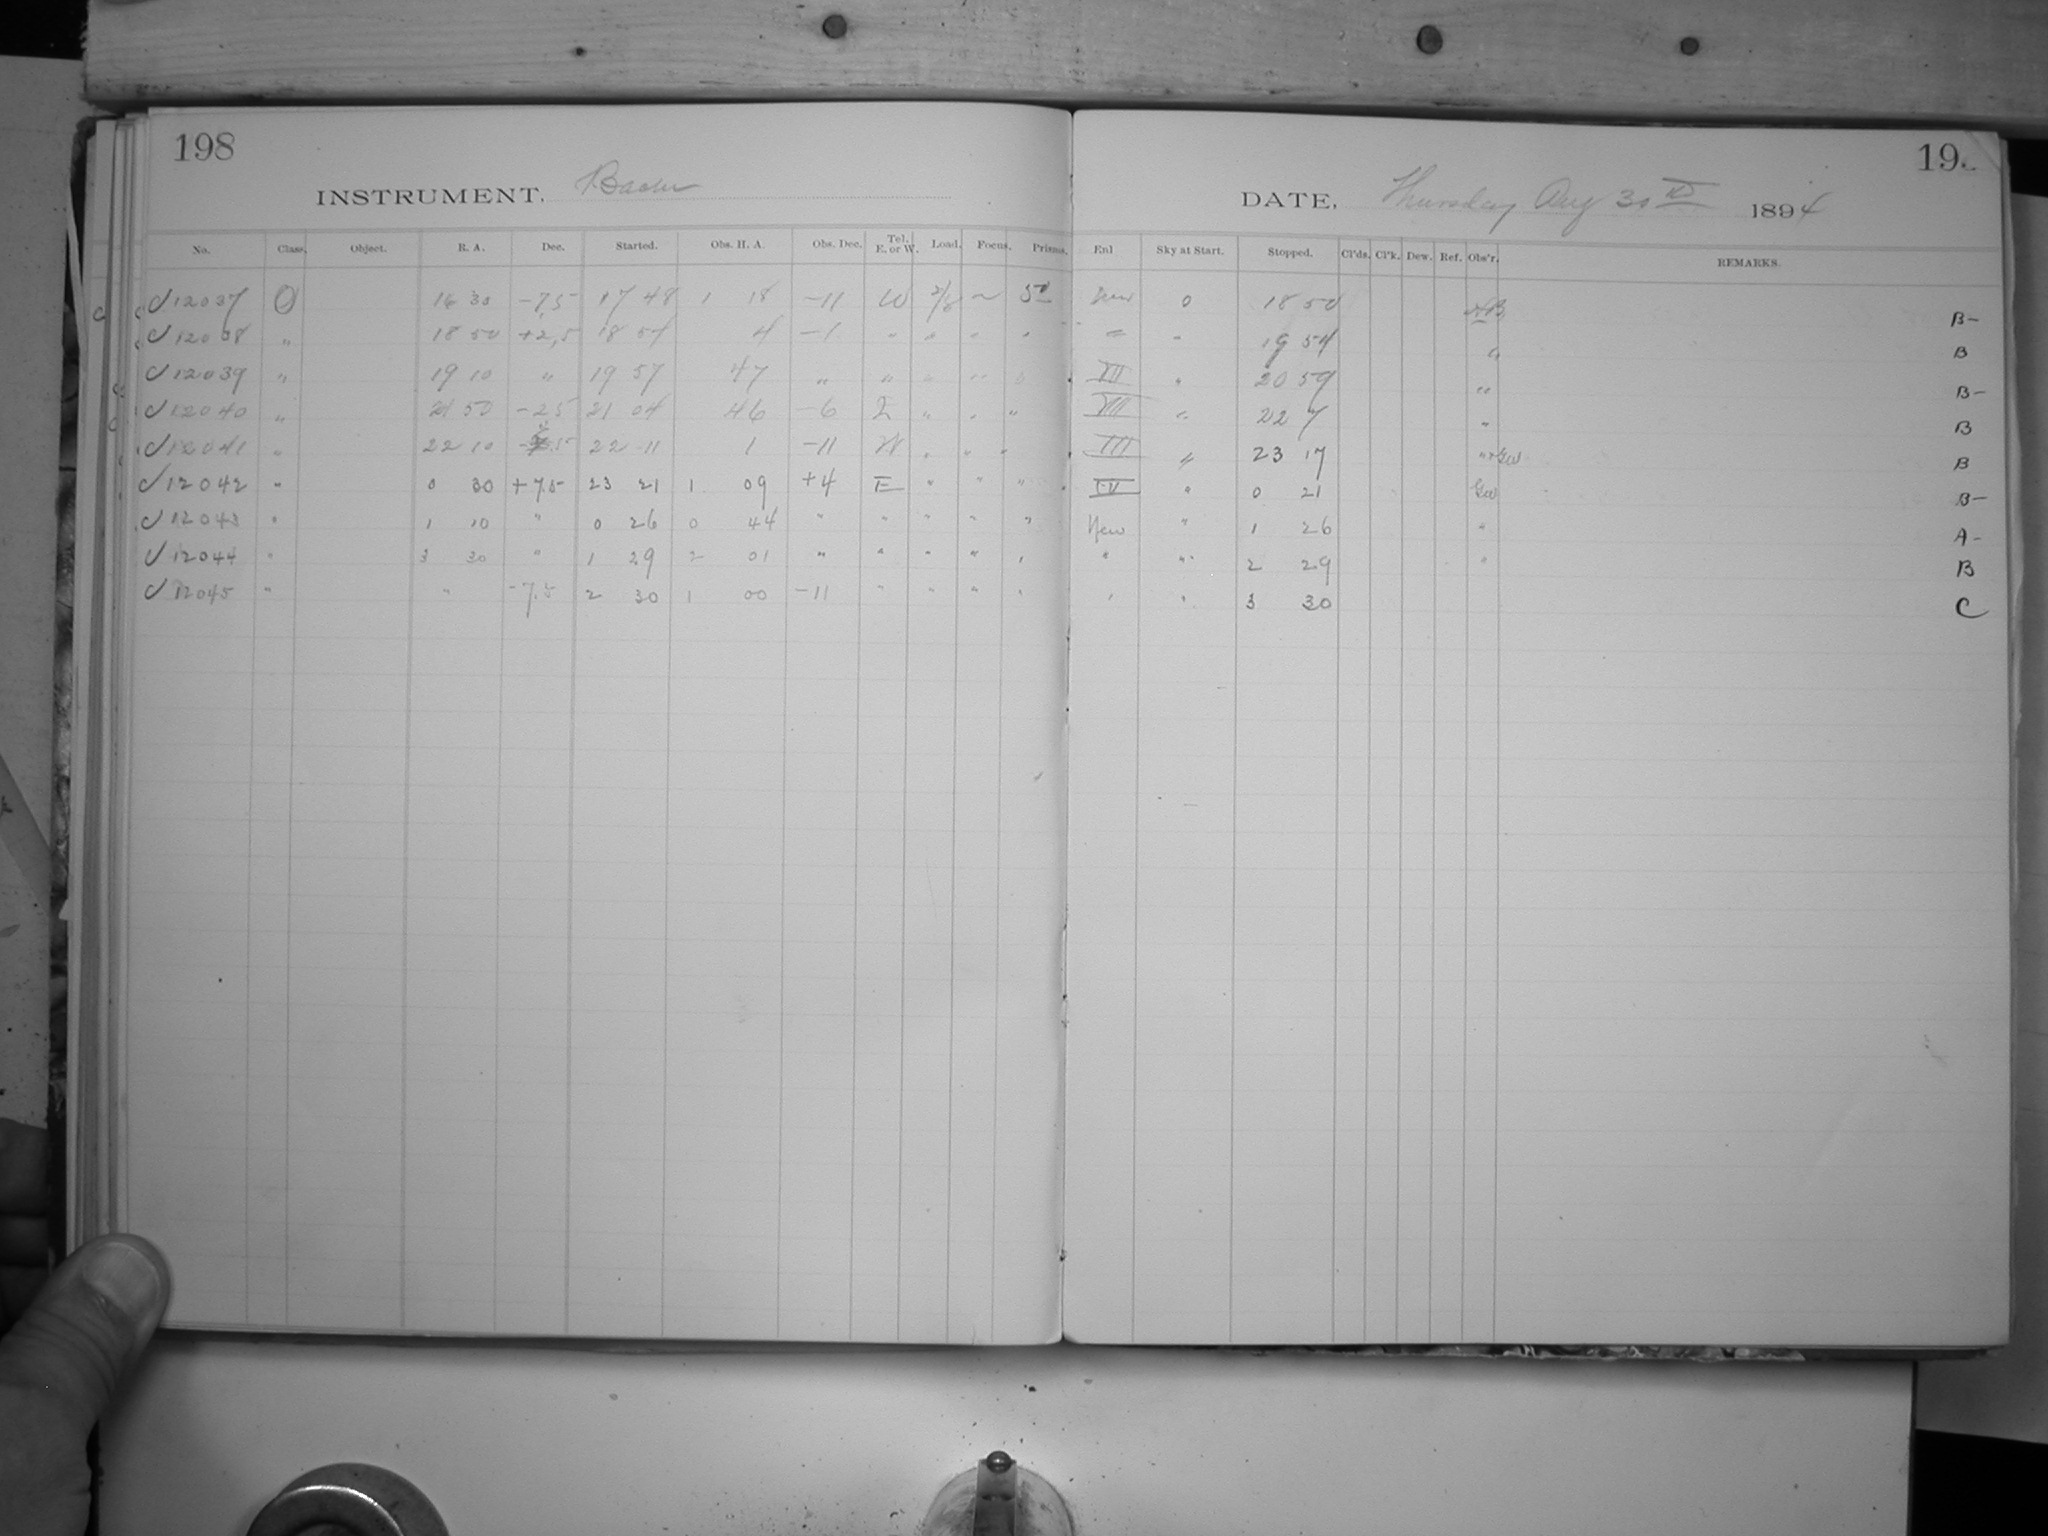 198
INSTRUMENT. Bache
No. Class. Object. R. A. Dec. Started. Obs. H. A. Obs. Dec. Tel. E. or W. Load. Focus. Prisms.
✓12037 O 16 30 -7,5 17 48 1 18 -11 W ~ 50
✓12038 " 18 50 +2,5 18 54 4 -1 " " " "
✓12039 " 19 10 " 19 57 47 " " " " "
✓12040 " 21 50 -2.5 21 04 46 -6 E " " "
✓12041 " 22 10 22 11 1 -11 W " " "
✓12042 " 0 30 +7.5 23 21 1 09 +4 E " " "
✓12043 " 1 10 " 0 26 0 44 " " " " "
✓12044 " 3 30 " 1 29 2 01 " " " " "
✓12045 " " -7.5 2 30 1 00 -11 " " " "
19
DATE, Thursday Aug 30th 1894
Enl Sky at Start. Stopped. Cl'ds. Cl'k. Dew. Ref. Obs'r. REMARKS.
New 0 18 50 AB B-
" " 19 54 " B
VII " 20 59 " B-
VIII " 22 7 " B
III " 23 17 " + GW B
IV " 0 21 GW B-
New " 1 26 " A-
" " 2 29 " B
" " 3 30 C